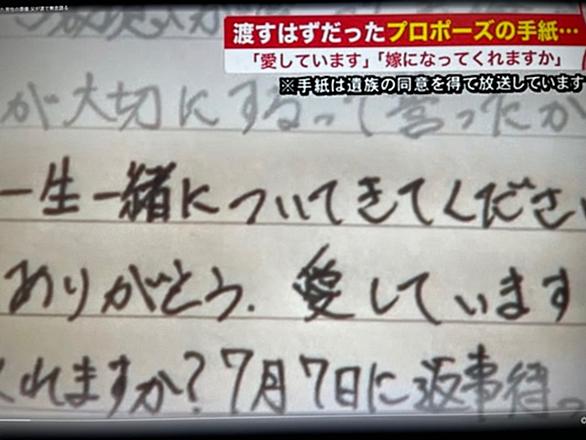 渡すはずだったプロポーズの手紙…
「愛しています」「嫁になってくれますか」
※手紙は遺族の同意を得て放送しています
が大切にするって言ったか
一生一緒についてきてください
ありがとう. 愛しています
くれますか?7月7日に返事待っ